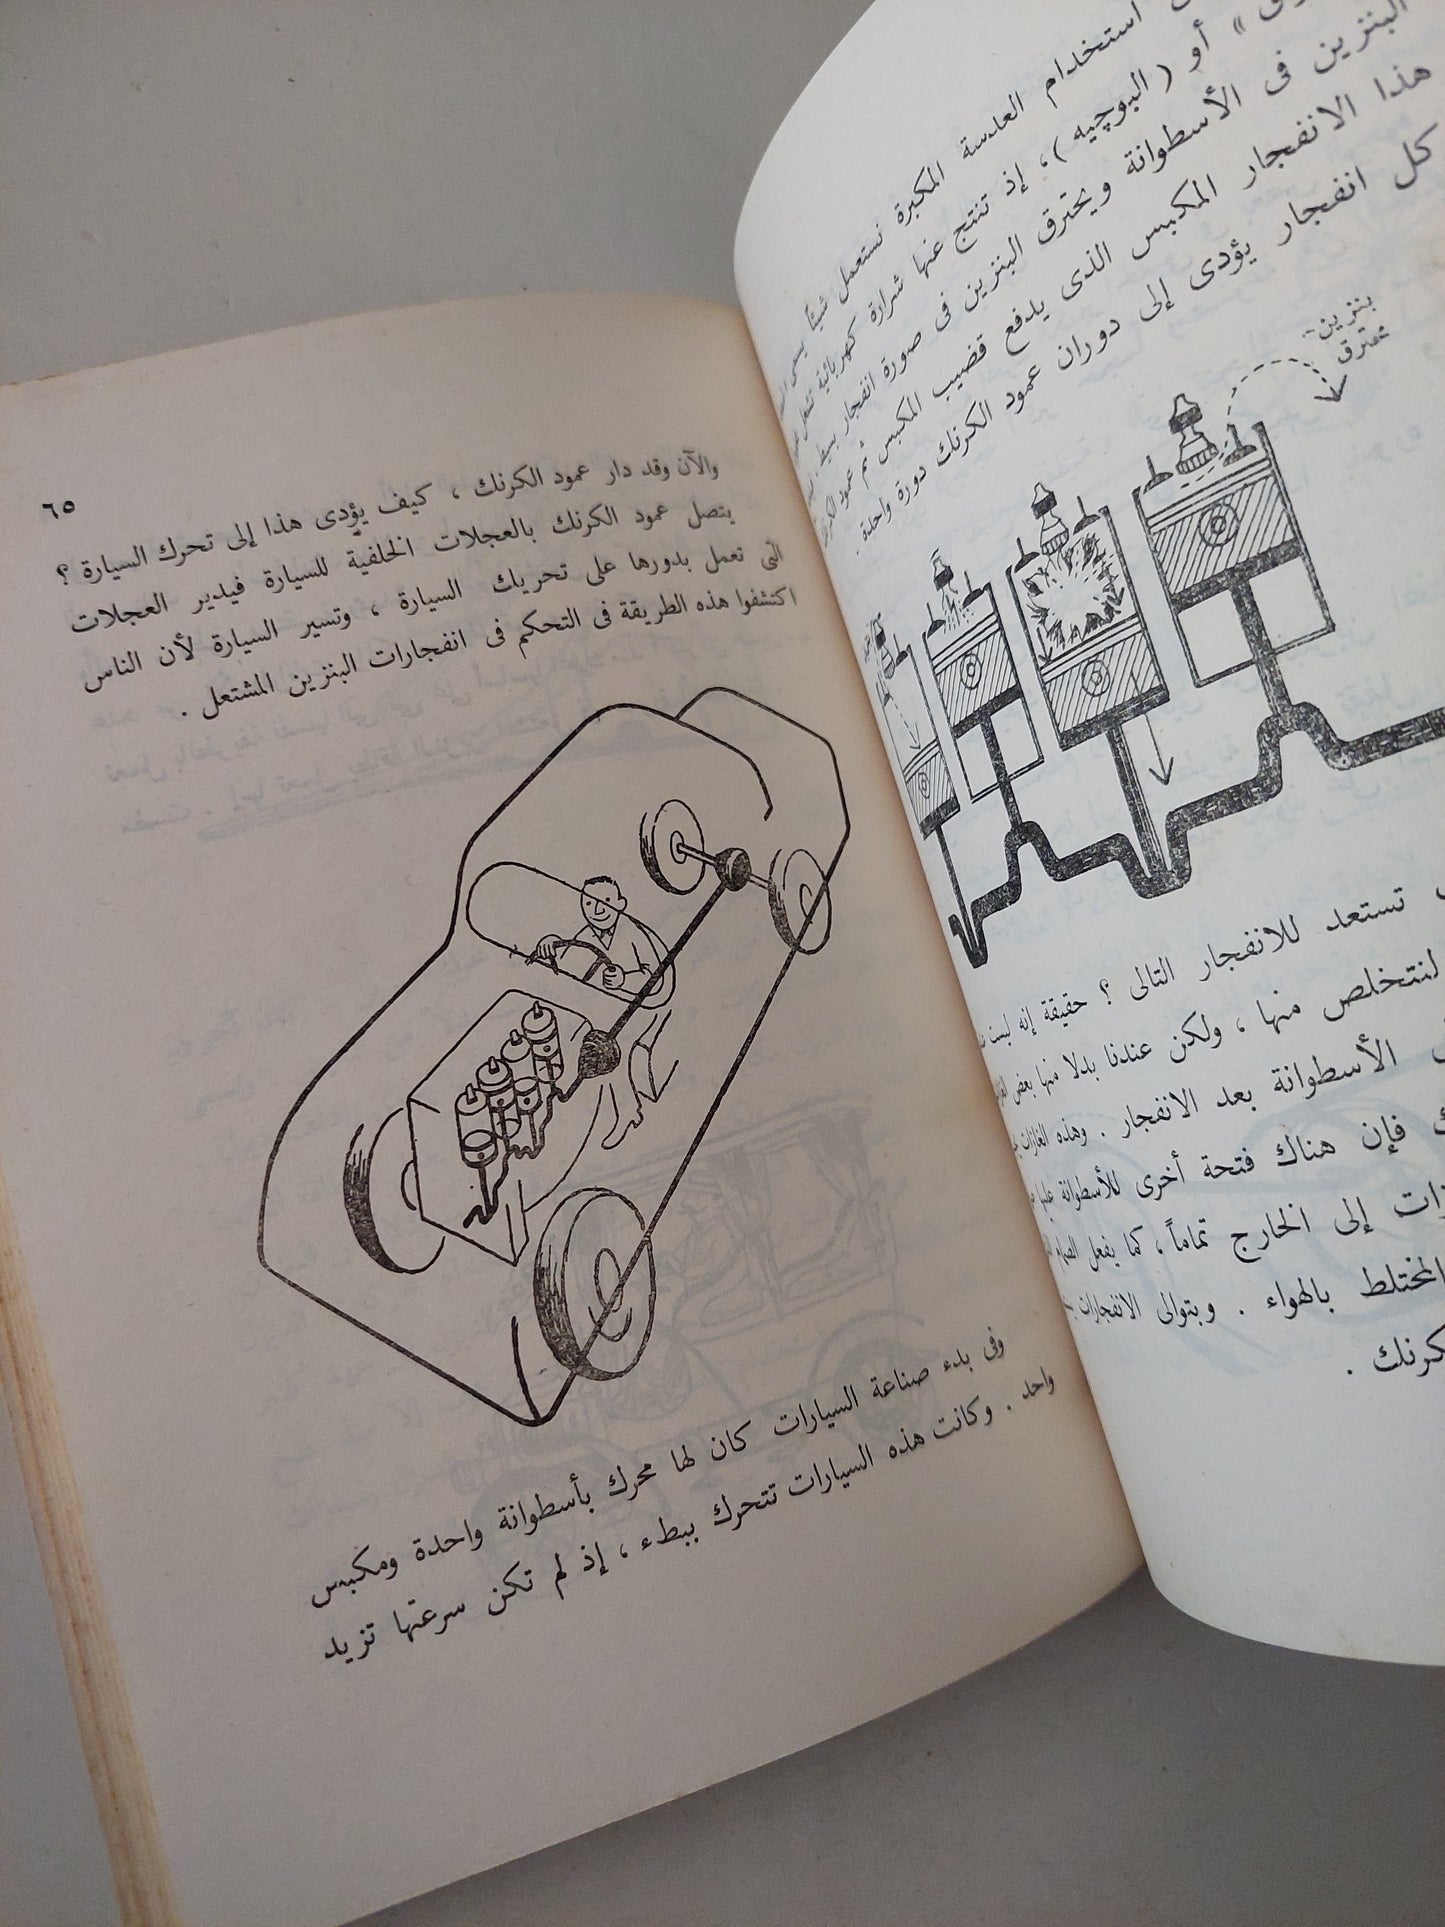 استخدام العدسة المكبرة نستعمل شيئاً يسمى
أو ( البوجيه ) ، إذ تنتج عنها شرارة كهربائية تشعل
البنزين فى الأسطوانة ويحترق البنزين فى صورة انفجار بسيط
هذا الانفجار المكبس الذى يدفع قضيب المكبس ثم عمود الكرنك
كل انفجار يؤدى إلى دوران عمود الكرنك دورة واحدة .
بنزين
محترق
تستعد للانفجار التالى ؟ حقيقة إنه ليست
لنتخلص منها ، ولكن عندنا بدلا منها بعض
الأسطوانة بعد الانفجار . وهذه الغازات
فإن هناك فتحة أخرى للأسطوانة عليها
إلى الخارج تماماً ، كما يفعل الصمام
المختلط بالهواء . وبتوالى الانفجارات
كرنك .
٦٥
والآن وقد دار عمود الكرنك ، كيف يؤدى هذا إلى تحرك السيارة ؟
يتصل عمود الكرنك بالعجلات الخلفية للسيارة فيدير العجلات
التى تعمل بدورها على تحريك السيارة ، وتسير السيارة لأن الناس
اكتشفوا هذه الطريقة فى التحكم فى انفجارات البنزين المشتعل .
وفى بدء صناعة السيارات كان لها محرك بأسطوانة واحدة ومكبس
واحد . وكانت هذه السيارات تتحرك ببطء ، إذ لم تكن سرعتها تزيد